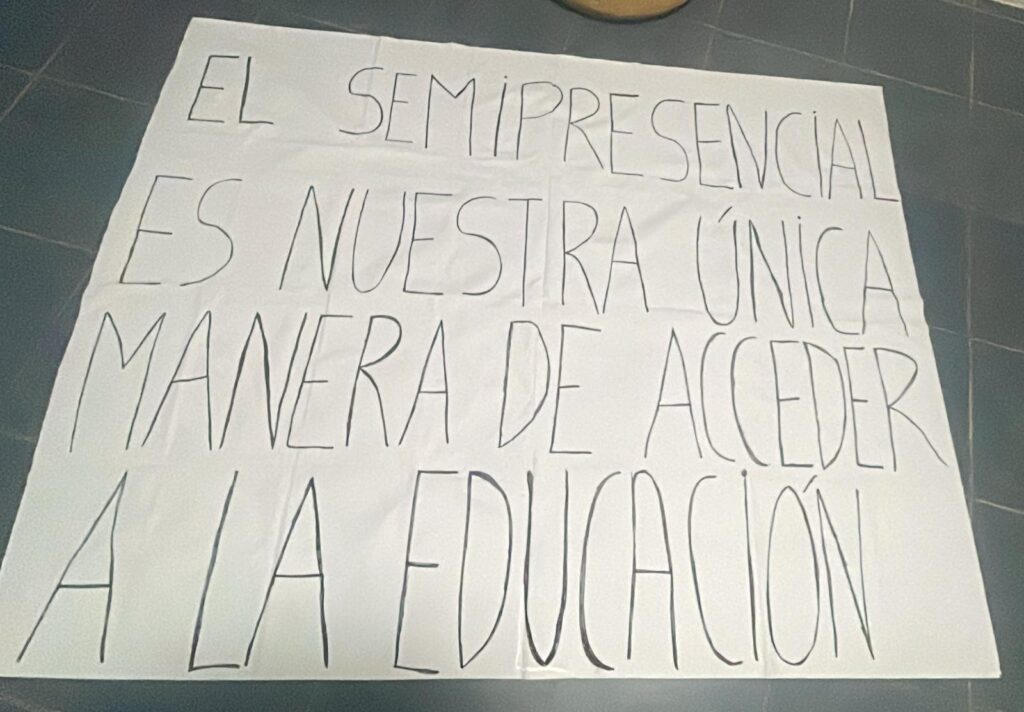 EL SEMIPRESENCIAL
ES NUESTRA ÚNICA
MANERA DE ACCEDER
A LA EDUCACIÓN